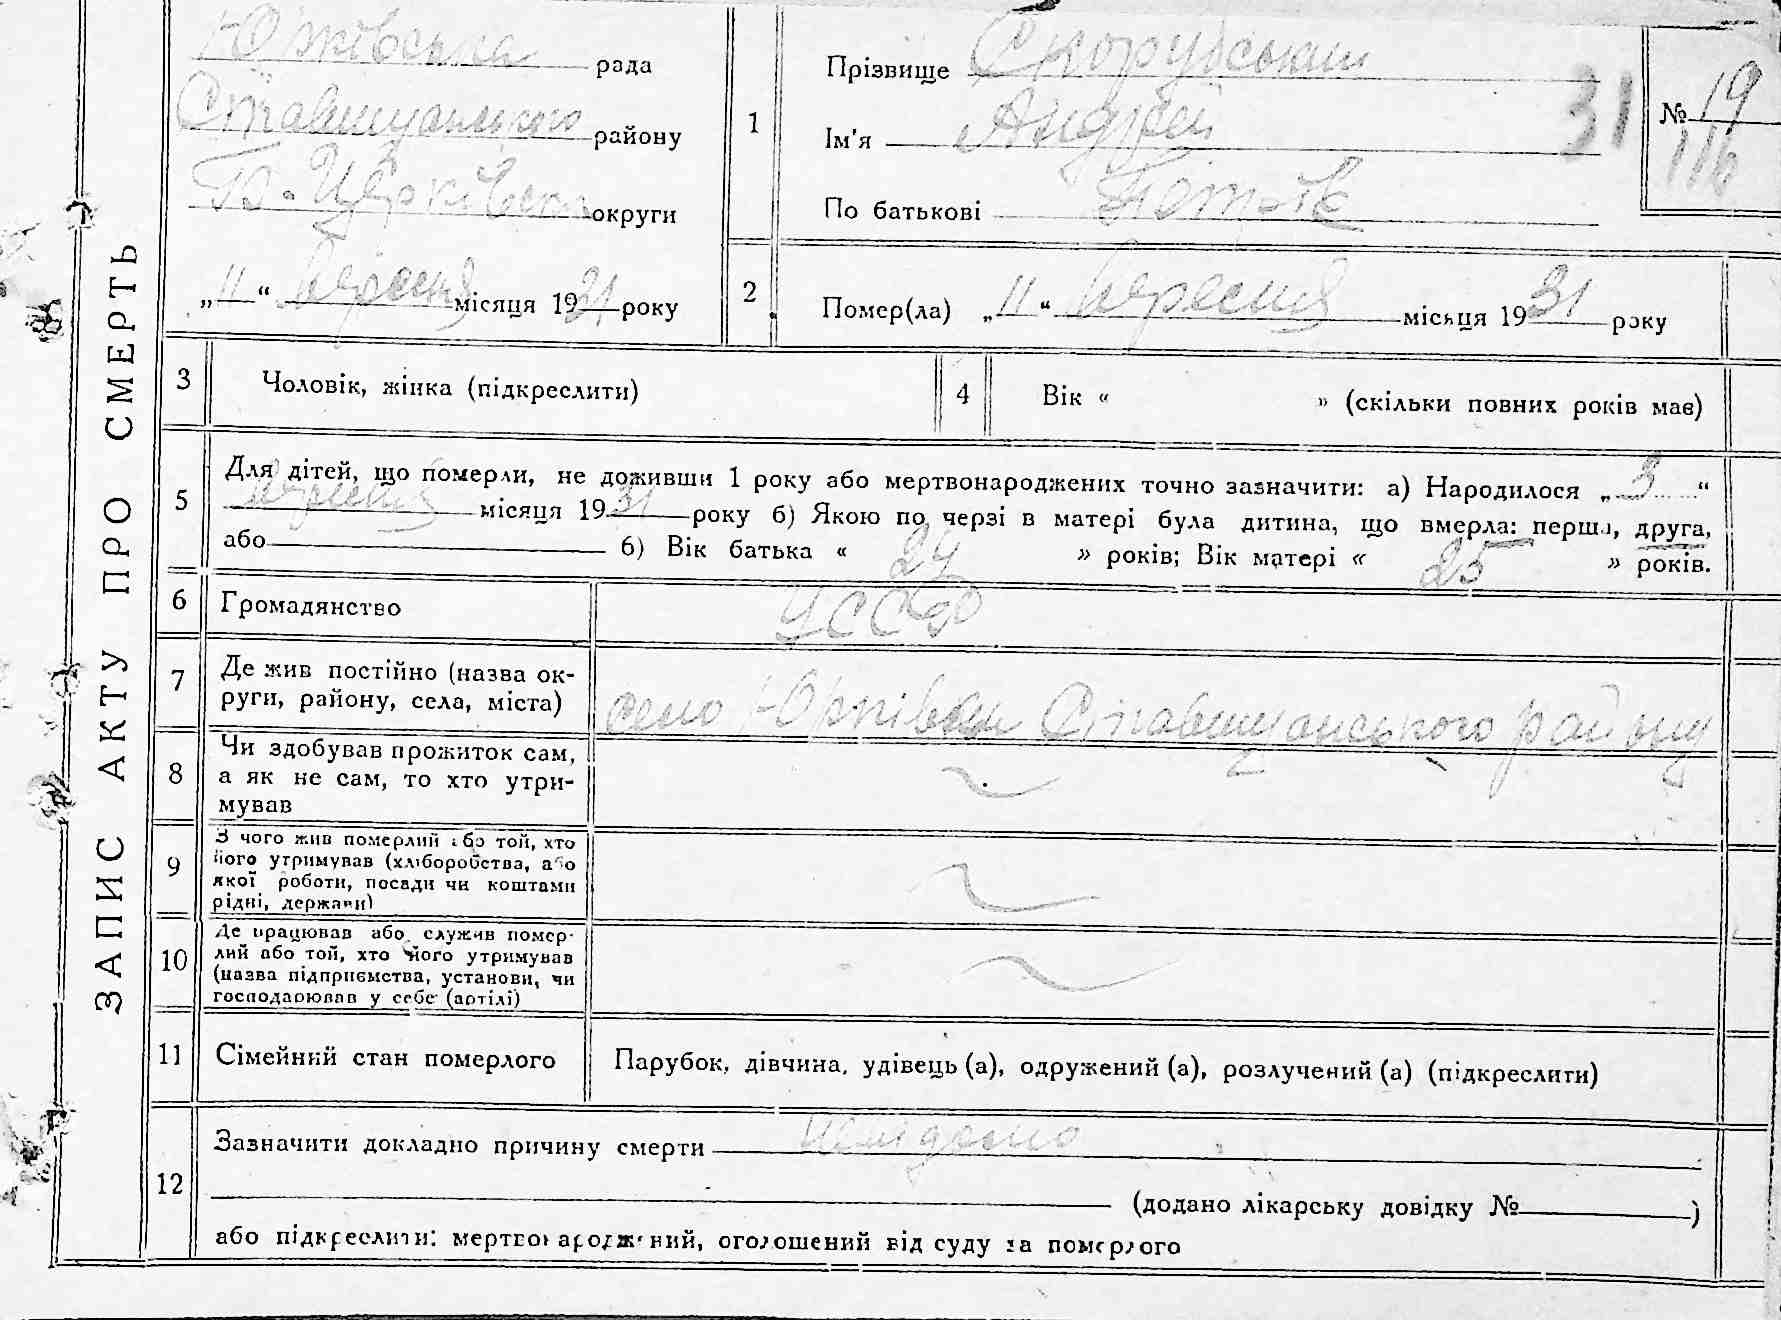 ЗАПИС АКТУ ПРО СМЕРТЬ
Юрківська рада
Ставищанського району
Б. Церківська округи
„11“ Вересня місяця 1931 року
1
Прізвище Скорубський
Ім'я Андрій
По батькові
31
№ 19
116
2
Помер(ла) „11“ Вересня місяця 1931 року
3 Чоловік, жінка (підкреслити)
4 Вік « » (скільки повних років має)
5 Для дітей, що померли, не доживши 1 року або мертвонароджених точно зазначити: а) Народилося „3“
Вересня місяця 1931 року б) Якою по черзі в матері була дитина, що вмерла: перша, друга,
або 6) Вік батька « 24 » років; Вік матері « 25 » років.
6 Громадянство УССР
7 Де жив постійно (назва ок-
руги, району, села, міста) село Юрківка Ставищанського району
8 Чи здобував прожиток сам,
а як не сам, то хто утри-
мував
9 З чого жив померлий або той, хто
його утримував (хліборобства, або
якої роботи, посади чи коштами
рідні, держави)
10 Де працював або служив помер-
лий або той, хто його утримував
(назва підприємства, установи, чи
господарював у себе (артілі)
11 Сімейний стан померлого Парубок, дівчина, удівець (а), одружений (а), розлучений (а) (підкреслити)
12 Зазначити докладно причину смерти невідомо
(додано лікарську довідку № )
або підкреслити: мертвонароджений, оголошений від суду за померлого